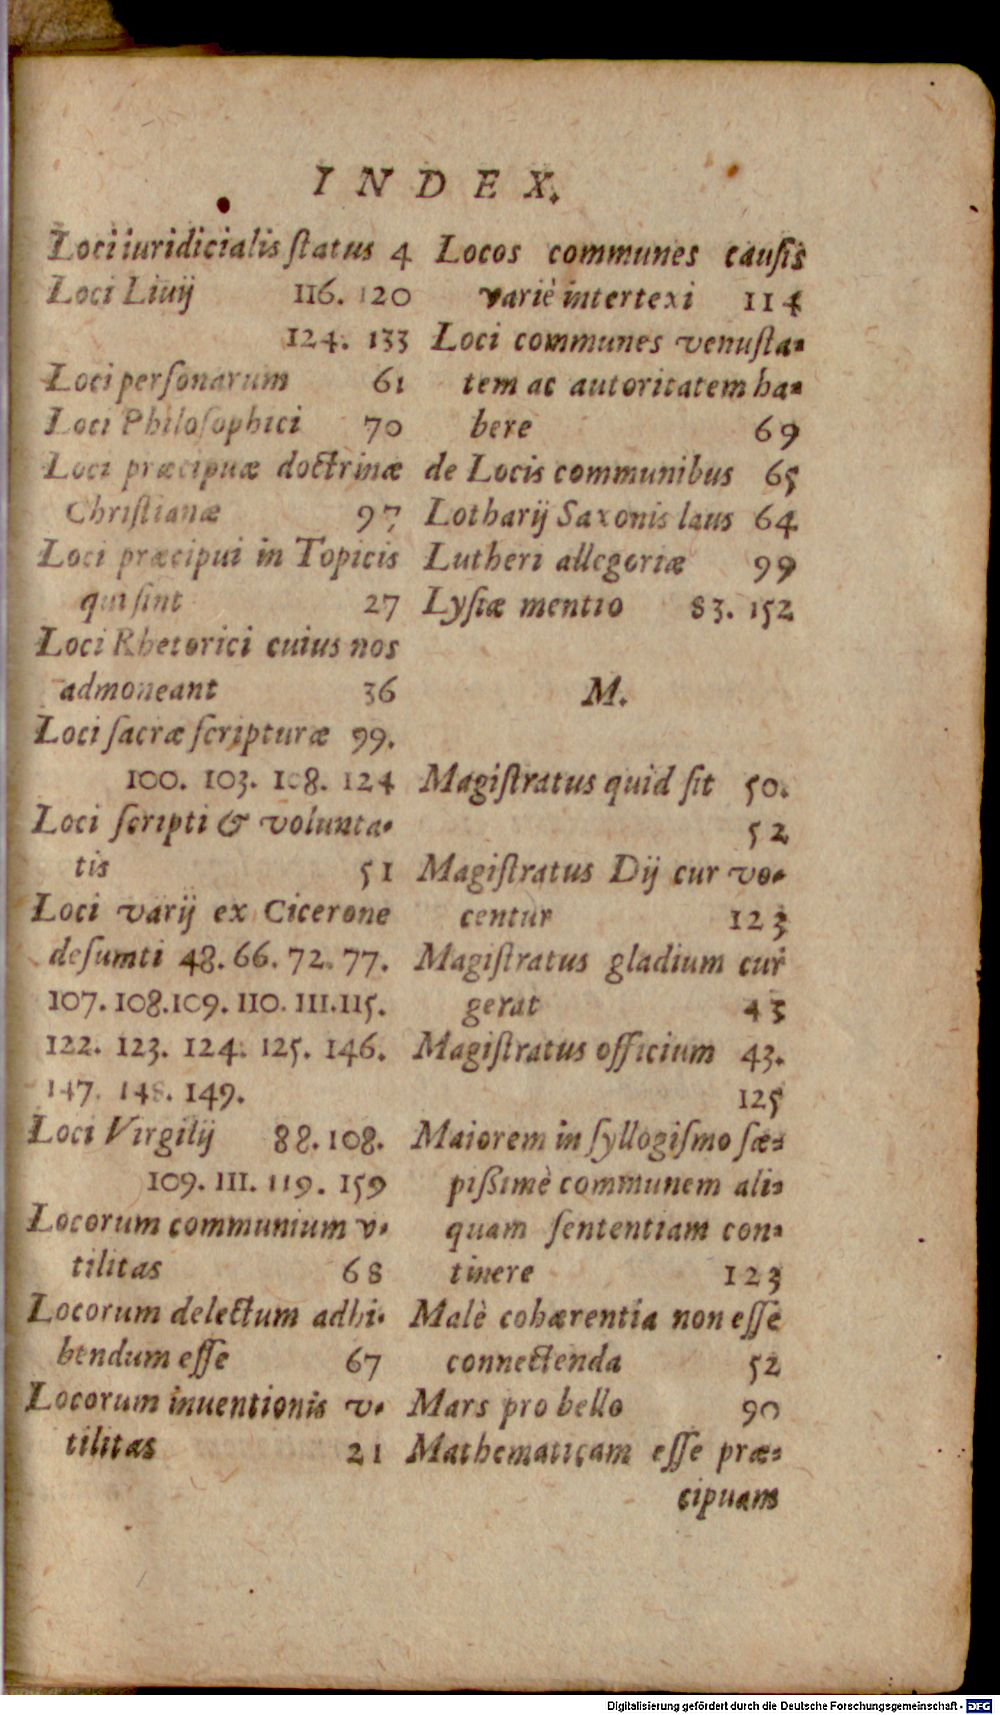 INDEX.
Loci iuridicialis ſtatus 4
Loci Liuij 116. 120
124. 133
Loci perſonarum 61
Loci Philoſophici 70
Loci præcipuæ doctrinæ
Chriſtianæ 97
Loci præcipui in Topicis
qui ſint 27
Loci Rhetorici cuius nos
admoneant 36
Loci ſacræ ſcripturæ 99.
100. 103. 108. 124
Loci ſcripti & volunta-
tis 51
Loci varij ex Cicerone
deſumti 48. 66. 72. 77.
107. 108. 109. 110. 111. 115.
122. 123. 124. 125. 146.
147. 148. 149.
Loci Virgilij 88. 108.
109. 111. 119. 159
Locorum communium v-
tilitas 68
Locorum delectum adhi-
bendum eſſe 67
Locorum inuentionis v-
tilitas 21
Locos communes cauſis
variè intertexi 114
Loci communes venuſta-
tem ac autoritatem ha-
bere 69
de Locis communibus 65
Lotharij Saxonis laus 64
Lutheri allegoriæ 99
Lyſiæ mentio 83. 152
M.
Magiſtratus quid ſit 50.
52
Magiſtratus Dij cur vo-
centur 123
Magiſtratus gladium cur
gerat 43
Magiſtratus officium 43.
125
Maiorem in ſyllogiſmo ſæ-
piſsimè communem ali-
quam ſententiam con-
tinere 123
Malè cohærentia non eſſe
connectenda 52
Mars pro bello 90
Mathematicam eſſe præ-
cipuam
Digitalisierung gefördert durch die Deutsche Forschungsgemeinschaft - DFG